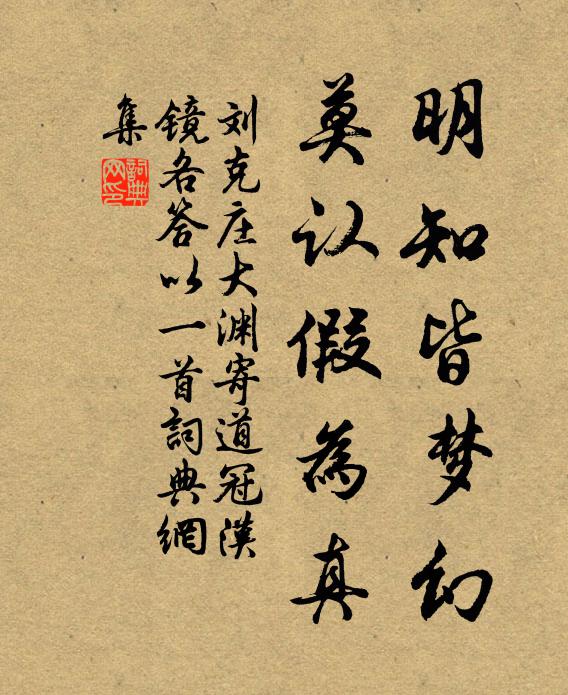 明知皆梦幻
莫认假為真
刘克庄大渊寄道冠汉
镜各答以一首詞典網
集
詞典
网印